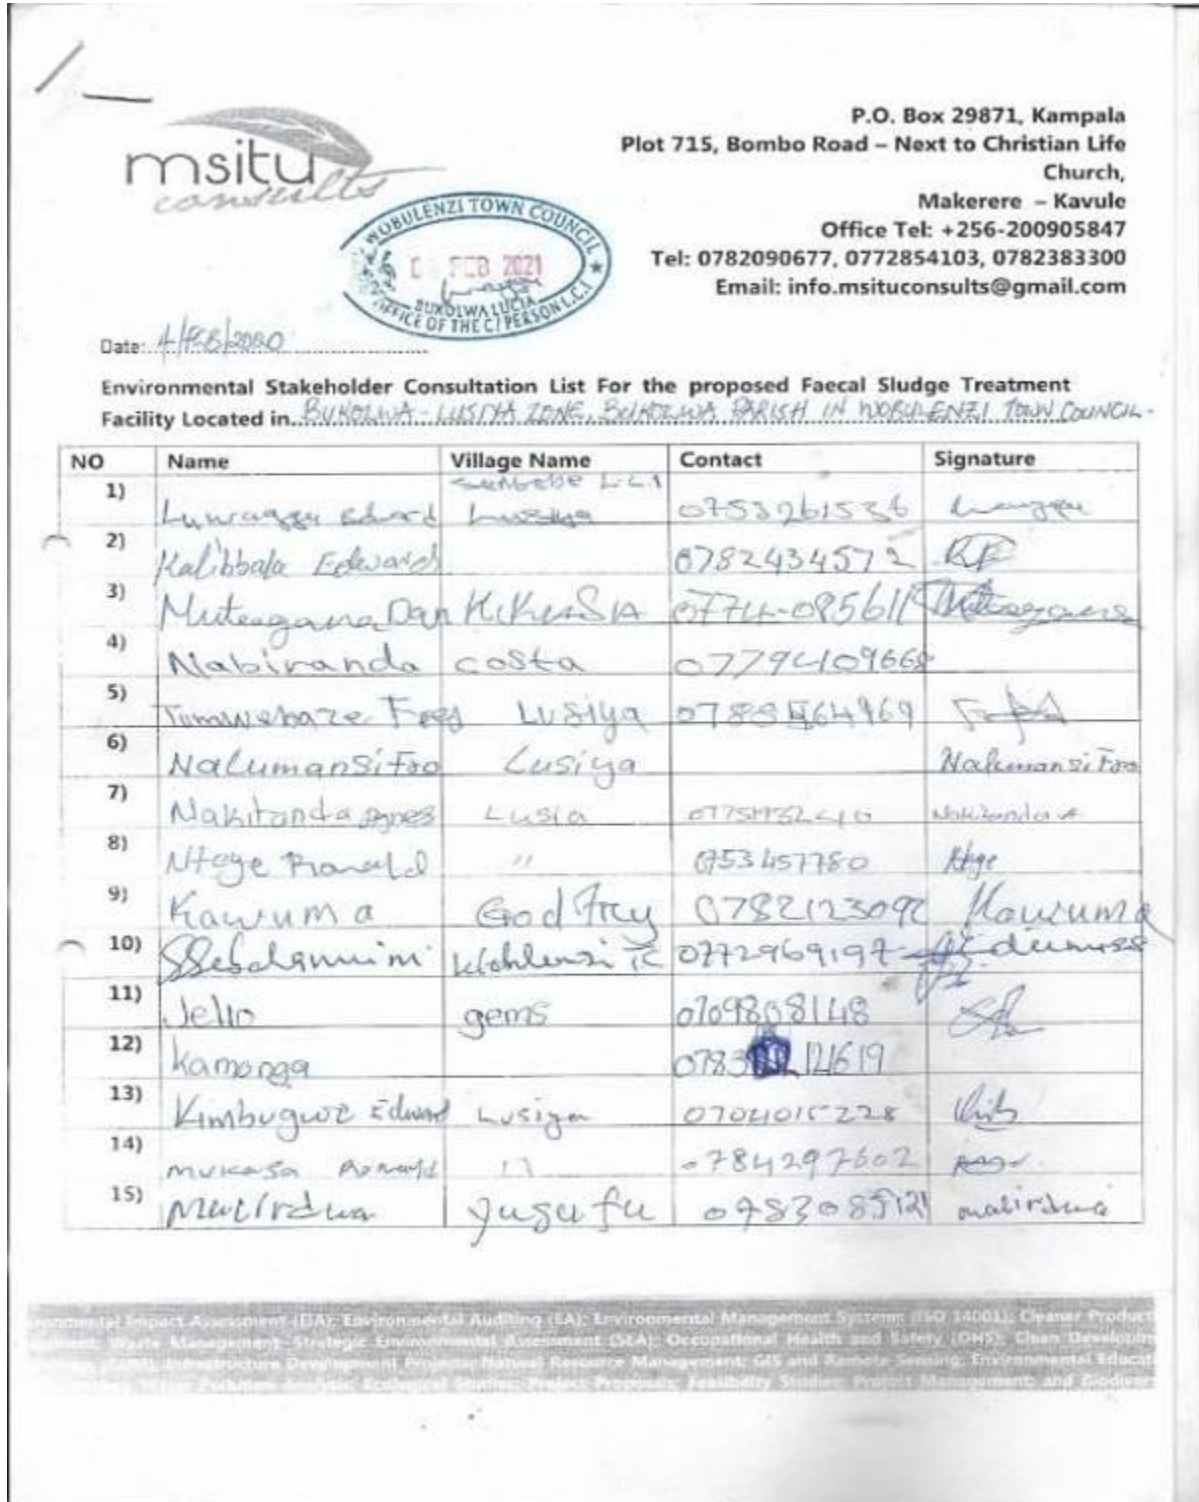 msitu
consults
P.O. Box 29871, Kampala
Plot 715, Bombo Road – Next to Christian Life
Church,
Makerere – Kavule
Office Tel: +256-200905847
Tel: 0782090677, 0772854103, 0782383300
Email: info.msituconsults@gmail.com
WOBULENZI TOWN COUNCIL
FEB 2021
BUKOLWA LUCIA
OFFICE OF THE C/PERSON L.C.I
Date: 4/FEB/2020
Environmental Stakeholder Consultation List For the proposed Faecal Sludge Treatment
Facility Located in BUKOLWA-LUSIYA ZONE, BUKOLWA PARISH IN WOBULENZI TOWN COUNCIL.
NO Name Village Name Contact Signature
L.C.1
1) Luwagga Edward Lusiya 0753261536
2) Kalibbala Edward 0782434572
3) Dan 0774-085611
4) Nabiranda costa 07794109668
5) Tumwebaze Fred Lusiya
6) Nalumansi Fao Lusiya Nalumansi Fao
7) Nakitanda Agnes Lusia Nakitanda A
8) Ntege Ronald " 0753457780 Ntege
9) Kawuma Godfrey 0782123092 Kawuma
10) 0772969197
11) Jello gems 0709808148
12) Kamonga
13) Kimbugwe Edward Lusiya 0704015228
14) mukasa Ronald " 0784297602
15) Yusufu
Environmental Impact Assessment (EIA); Environmental Auditing (EA); Environmental Management Systems (ISO 14001); Cleaner Product
Waste Management; Strategic Environmental Assessment (SEA); Occupational Health and Safety (OHS); Clean Developm
Infrastructure Development Projects; Natural Resource Management; GIS and Remote Sensing; Environmental Educati
Project Proposals; Feasibility Studies; Project Management; and Biodivers